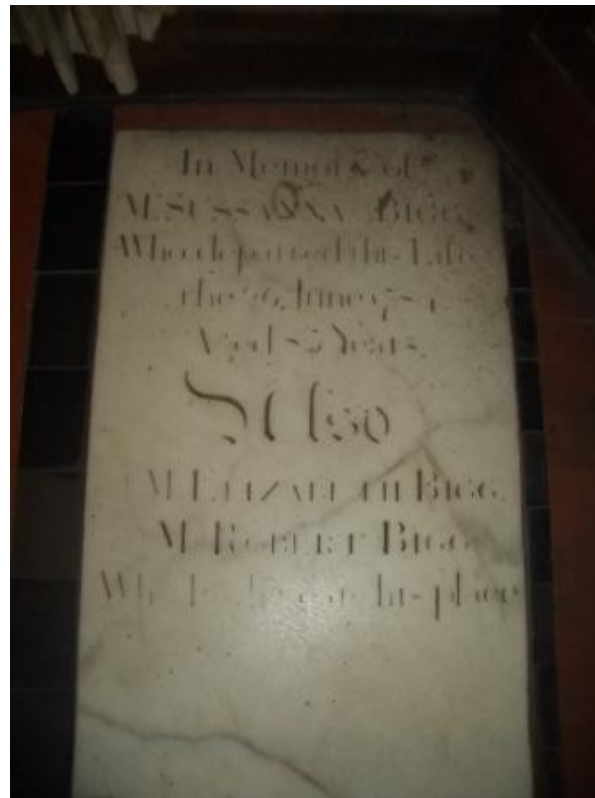 In Memory of
M SUSSANNA BIGG
Who departed this Life
the June
Aged Years
Also
M ELIZABETH BIGG
M ROBERT BIGG
Who place